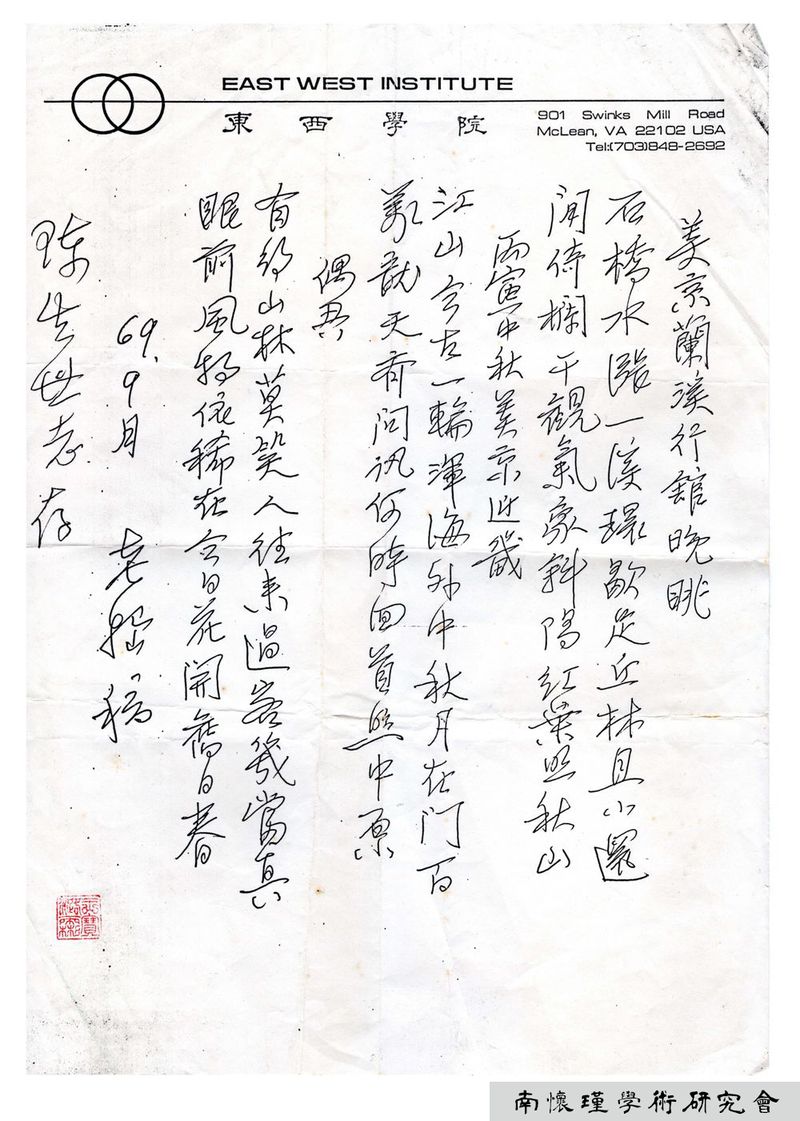 EAST WEST INSTITUTE
東西學院
901 Swinks Mill Road
McLean, VA 22102 USA
Tel:(703)848-2692
美京蘭溪行館晚眺
石橋水漲一溪環歇足丘林且小還
閒倚欄干觀氣象斜陽紅葉照秋山
丙寅中秋美京近畿
江山今古一輪渾海外中秋月在門百
天齊問訊何時回首照中原
偶吾
有約山林莫笑人往來過客幾當真
眼前風物依稀在今日花開舊日春
69.9月 老拙稿
陳生世志存
南懷瑾學術研究會